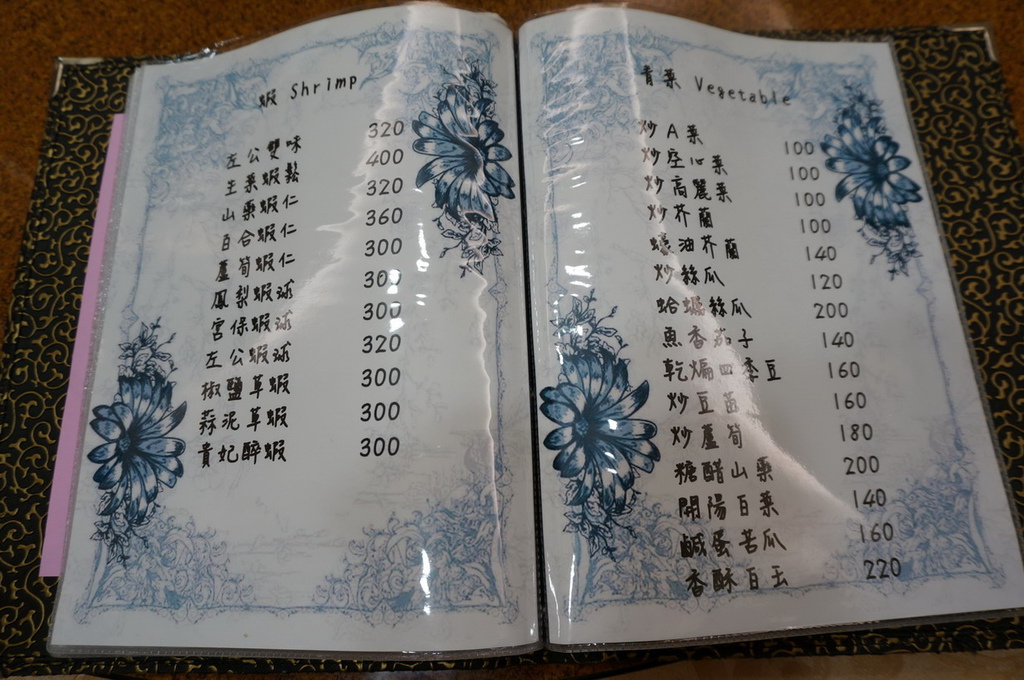 蝦 Shrimp
左公雙味 320
生菜蝦鬆 400
山藥蝦仁 320
百合蝦仁 360
蘆筍蝦仁 300
鳳梨蝦球 300
宮保蝦球 300
左公蝦球 320
椒鹽草蝦 300
蒜泥草蝦 300
貴妃醉蝦 300
青菜 Vegetable
炒A菜 100
炒空心菜 100
炒高麗菜 100
炒芥蘭 100
蠔油芥蘭 140
炒絲瓜 120
蛤蠣絲瓜 200
魚香茄子 140
乾煸四季豆 160
炒豆苗 160
炒蘆筍 180
糖醋山藥 200
開陽白菜 140
鹹蛋苦瓜 160
香酥百玉 220